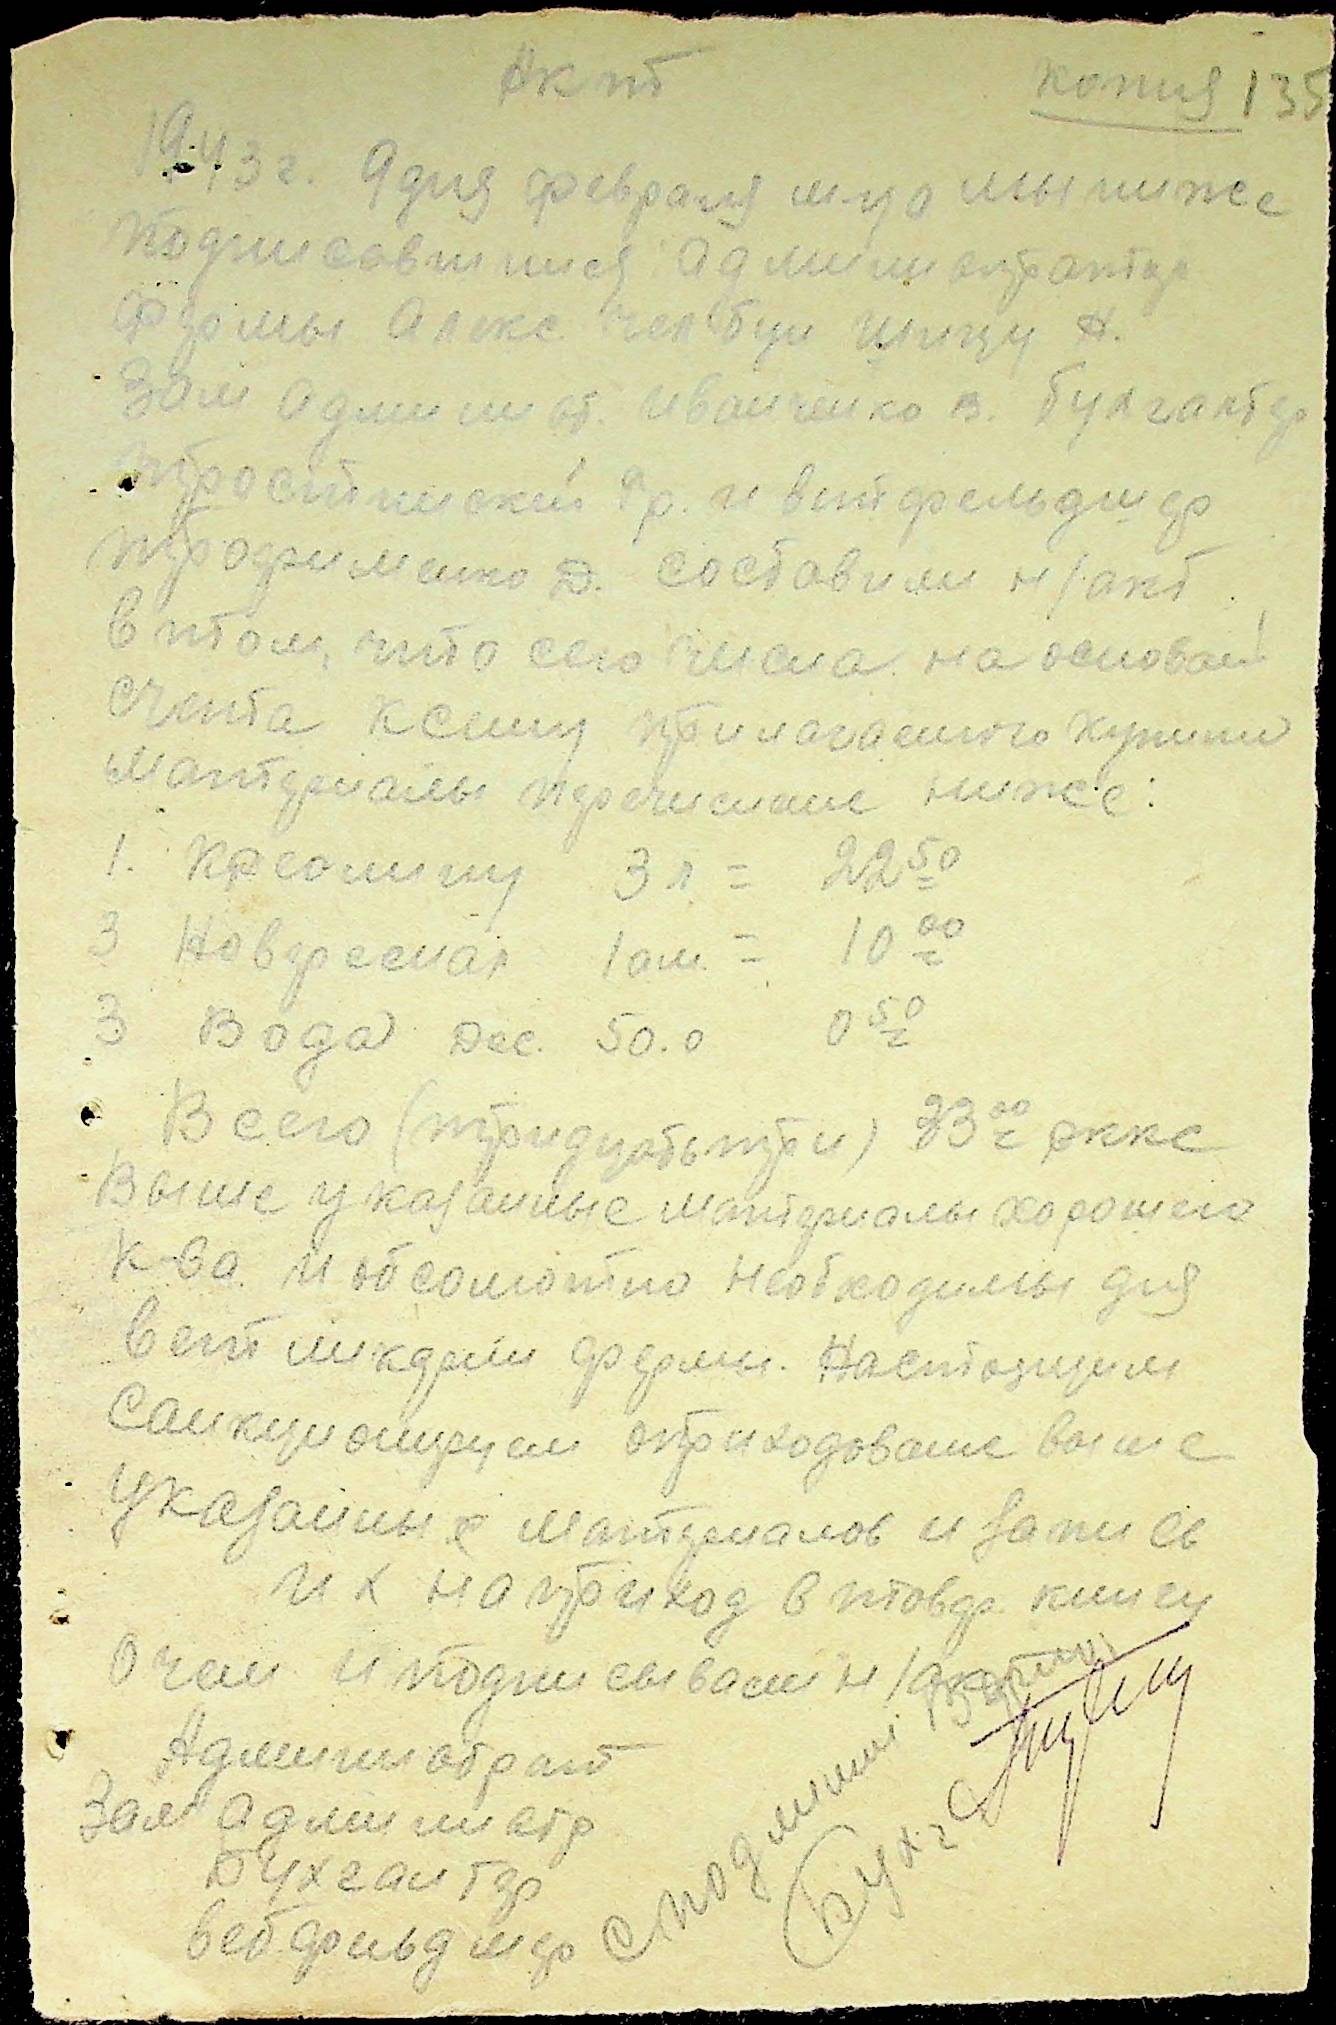 Акт
копия 135
1943 г. 9 дня февраля м-ца мы ниже
подписавшиеся администратор
фермы Алекс
Зам админист. Иванченко В. бухгалтер
Гр. и ветфельдшер
Трофименко Д. составили н/акт
в том, что сего числа на основан
счета к сему прилагаемого купили
материалы перечислине ниже:
1. Креолину 3 л = 22 50
3 1 ам. = 10 00
3 Вода 50.0 0 50
Всего (тридцать три) 33 00
Выше указанные материалы хорошего
к-ва и обсолютно необходимы для
вет фермы. Настоящим
санкционируем оприходование выше
указанных материалов и запись
их на приход в товар. книгу
О чем и подписываем н/акт
Администрат
Зам админис тр
Бухгалтер
ветфельдшер
С подлинным верно
Бухг